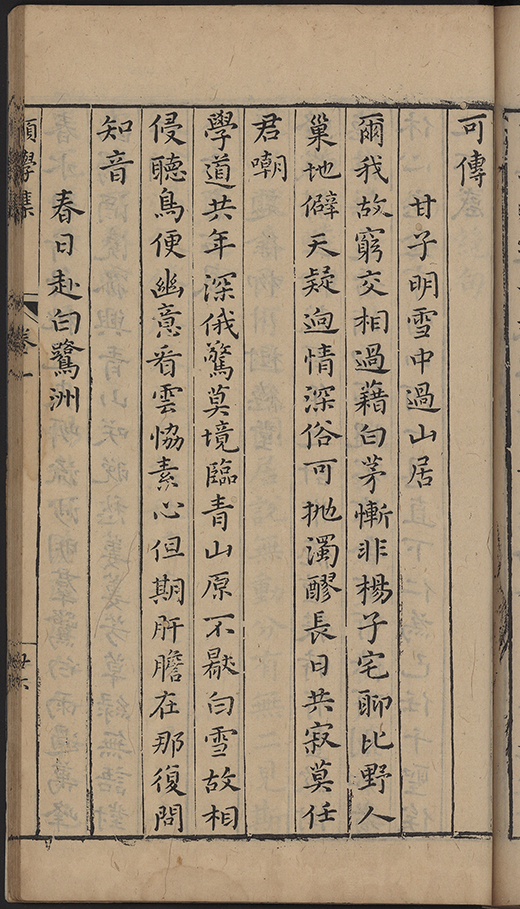 可傳
甘子明雪中過山居
爾我故窮交相過藉白茅慚非楊子宅聊比野人
巢地僻天疑逈情深俗可抛濁醪長日共寂莫任
君嘲
學道共年深俄驚莫境臨青山原不厭白雪故相
侵聽鳥便幽意看雲恊素心但期肝膽在那復問
知音
春日赴白鷺洲
學集 卷一 廿六